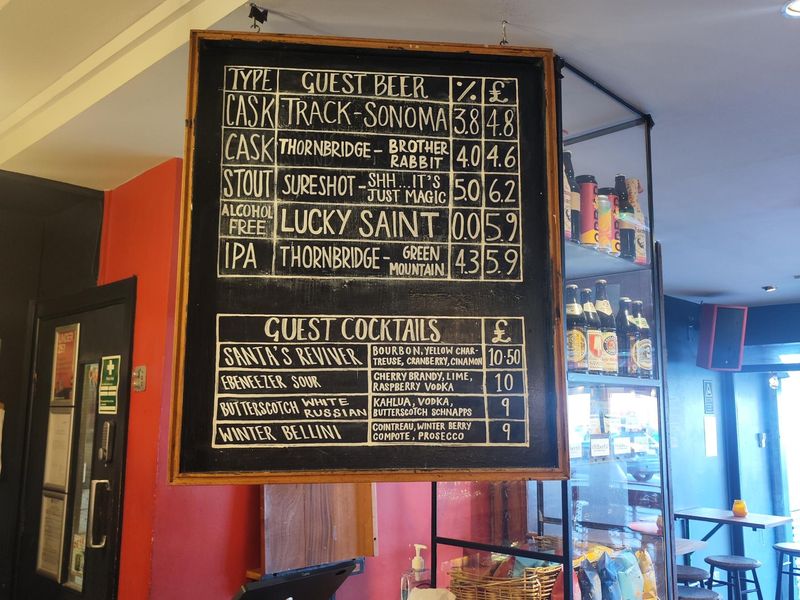 TYPE GUEST BEER % £
CASK TRACK-SONOMA 3.8 4.8
CASK THORNBRIDGE- BROTHER RABBIT 4.0 4.6
STOUT SURESHOT- SHH...IT'S JUST MAGIC 5.0 6.2
ALCOHOL FREE LUCKY SAINT 0.0 5.9
IPA THORNBRIDGE- GREEN MOUNTAIN 4.3 5.9
GUEST COCKTAILS £
SANTA'S REVIVER BOURBON, YELLOW CHAR-
TREUSE, CRANBERRY, CINAMON 10.50
EBENEEZER SOUR CHERRY BRANDY, LIME,
RASPBERRY VODKA 10
BUTTERSCOTCH WHITE RUSSIAN KAHLUA, VODKA,
BUTTERSCOTCH SCHNAPPS 9
WINTER BELLINI COINTREAU, WINTER BERRY
COMPOTE, PROSECCO 9